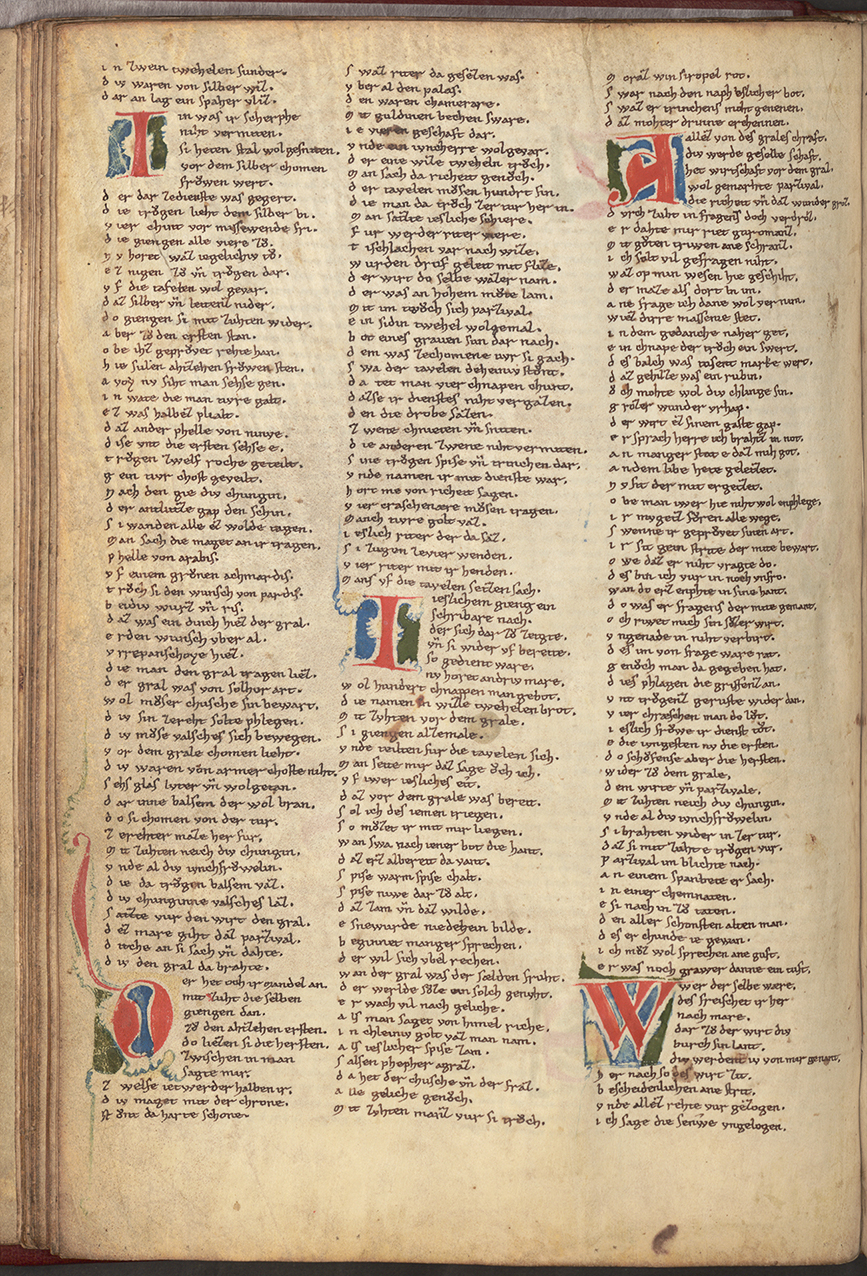 i n zwein twehelen sunder.
d iv waren von silber wiz.
d ar an lag ein spaher vliz.
I in was ir scherphe
niht vermiten.
si heten stal wol gesniten.
vor dem silber chomen
fröwen wert.
d er dar ze dienste was gegert.
d ie trögen lieht dem silber bi.
v ier chint vor missewende fri.
d ie giengen alle viere zö.
n v horet waz iegelichiv tö.
e z nigen zö vn̄ trögen dar.
v f die tafelen wol gevar.
d az silber vn̄ leitenz nider.
d o giengen si mit zuhten wider.
a ber zö den ersten stan.
o be ihz geprövet rehte han.
h ie sulen ahzehen fröwen sten.
a voy nv siht man sehse gen.
i n wate die man tivre galt.
e z was halbez plialt.
d az ander phelle von ninve.
d ise vnt die ersten sehse e.
t rögen zwelf roche geteilt.
g ein tivr chost geveilt.
n ach den gie div chungin.
d er antlutze gap den schin.
s i wanden alle ez wolde tagen.
m an sach die maget an ir tragen.
p helle von arabis.
v f einem grönen achmardis.
t röch si den wunsch von pardis.
b eidiv wurz vn̄ ris.
d az was ein dinch hiez der gral.
e rden wunsch vber al.
v rrepanschoye hiez.
d ie man den gral tragen liez.
d er gral was von solher art.
w ol möser chusche sin bewart.
d iv sin zereht solte phlegen.
d iv möse valsches sich bewegen.
v or dem grale chomen lieht.
d iv waren von armer choste niht.
s ehs glas lvter vn̄ wolgetan.
d ar inne balsem der wol bran.
d o si chomen von der tur.
z erehter maze her fur.
m it zuhten neich div chungin.
v nde al div ivnchfröwelin.
d ie da trögen balsem vaz.
d iv chunginne valsches laz.
s atzte vur den wirt den gral.
d ez mare giht daz parzival.
d icche an si sach vn̄ dahte.
d iv den gral da brahte.
O er het och ir mandel an.
mit zuht die selben
giengen dan.
zö den ahzehen ersten.
do liezen si die hersten.
zwischen in man
sagte mir.
z welfe ietwerder halben ir.
d iv maget mit der chrone.
st önt da harte schone.
s waz riter da gesezen was.
v ber al den palas.
d en waren chamerare.
m it guldinen bechen sware.
i e vieren geschaft dar.
v nde ein ivncherre wolgevar.
d er eine wize tweheln tröch.
m an sach da richeit genöch.
d er tavelen mösen hundrt sin.
d ie man da tröch zer tur her in.
m an satzte iesliche schiere.
f ur werder riter viere.
t ischlachen var nach wize.
w urden druf geleit mit flize.
d er wirt do selbe wazer nam.
d er was an hohem möte lam.
m it im twöch sich parzival.
e in sidin twehel wolgemal.
b ot eines graven sun dar nach.
d em was ze chomene vur si gach.
s wa der tavelen deheiniv stönt.
d a tet man vier chnapen chunt.
d az se ir dienstes niht vergazen.
d en die drobe sazen.
z wene chnieten vn̄ sniten.
d ie anderen zwene niht vermiten.
s ine trögen spise vn̄ trinchen dar.
v nde namen ir mit dienste war.
h ort me von richeit sagen.
v ier craschen möesen tragen.
m anch tivre golt vaz.
i eslich riter der da saz.
s i zugen zevier wenden.
v ier riter mit ir henden.
m ans vf die tavelen setzen sach.
I ieslichem gieng ein
schribare nach.
der sich dar zö zetzte.
vn̄ si wider vf bereite.
so gedient ware.
nv horet andriv mare.
w ol hundert chnappen man gebot.
d ie namen in wize twehelen brot.
m it zvhten vor dem grale.
s i giengen allemale.
v nde teilten fur die tavelen sich.
m an seite mir daz sage öch ich.
v f iwer iesliches eit.
d az vor dem grale was bereit.
s ol ich des iemen triegen.
s o möezet ir mit mir liegen.
w an swa nach iener bot die hant.
d az erz albereit da vant.
s pise warm spise chalt.
s pise niwe dar zö alt.
d az zam vn̄ daz wilde.
e sne wurde nie dehein bilde.
b eginnet manger sprechen.
d er wil sich vbel rechen.
w an der gral was der sælden fruht.
d er werlde söze ein solch genuht.
e r wach vil nach geliche.
a ls man saget von himel riche.
i n chleiniv golt vaz man nam.
a ls ieslicher spise zam.
s alsen pheffer agraz.
d a het der chusche vn̄ der fraz.
a lle geliche genöch.
m it zvhten manz vur si tröch.
m oraz win siropel rot.
s war nach den naph ieslicher bot.
s waz er trinchens moht genenen.
d az mohter drinne erchennen.
A allez von des grales chraft.
div werde geselle schaft.
het wirtschaft vor dem gral.
wol gemarhte parzival.
die richeit vn̄ daz wunder groz.
d vrch zuht in fragens doch verdroz.
e r dahte mir riet gurnomanz.
m it göten triwen ane schranz.
i ch solt vil gefragen niht.
w az op min wesen hie geschiht.
d er maze als dort bi im.
a ne frage ich dane wol vernim.
w iez dirre massenie stet.
i n dem gedanche naher get.
e in chnape der tröch ein swert.
d es balch was tusent marke wert.
d az gehilze was ein rubin.
ö ch mohte wol div chlinge sin.
g rözer wunder vrhap.
d er wirt ez sinem gaste gap.
e r sprach herre ich brahtz in not.
a n manger stat e daz mich got.
a n dem libe hete geletzet.
n v sit der mit ergetzet.
o be man iwer hie niht wol enphlege.
i r mvgetz fören alle wege.
s wenne ir geprövet sinen art.
i r sit gein strite der mite bewart.
o we daz er niht vragte do.
d es bin ich vur in noch vnfro.
w an do erz enphie in sine hant.
d o was er fragens der mite gemant.
o ch riwet mich sin sözer wirt.
v ngenade in niht verbirt.
d es im von frage ware rat.
g enöch man da gegeben hat.
d ies phlagen die griffenz an.
v nt trögenz geruste wider dan.
v ier chraeschen man do löt.
i eslich fröwe ir dienst töt.
e die ivngesten nv die ersten.
d o schöfense aber die hersten.
w ider zö dem grale,
d em wirte vn̄ parzivale.
m it zuhten neich div chungin.
v nde al div ivnchfröwelin.
s i brahten wider in zer tur.
d az si mit zuht e trögen vur.
p arzival im blichte nach.
a n einem spanbete er sach.
i n einer chemnaten.
e si nach in zö taten.
d en aller schonsten alten man.
d es er chunde ie gewan.
i ch möz wol sprechen ane guft.
e r was noch grawer danne ein tuft.
W wer der selbe were,
des freischet ir her
nach mare.
dar zö der wirt div
burch sin lant.
div werdent iv von mir genant,
h er nach so des wirt zit.
b escheidenlichen ane strit.
v nde allez rehte vur gezogen.
i ch sage die senwe vngelogen.